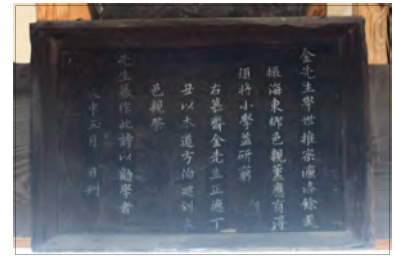 金先生學世推宗濂洛餘風
振海東鄉邑親薰應有得
須將小學益研窮
右慕齋金先生正德丁
丑以本道方伯巡到本
邑親祭
先生墓作此詩以勸學者
申五月 日刊